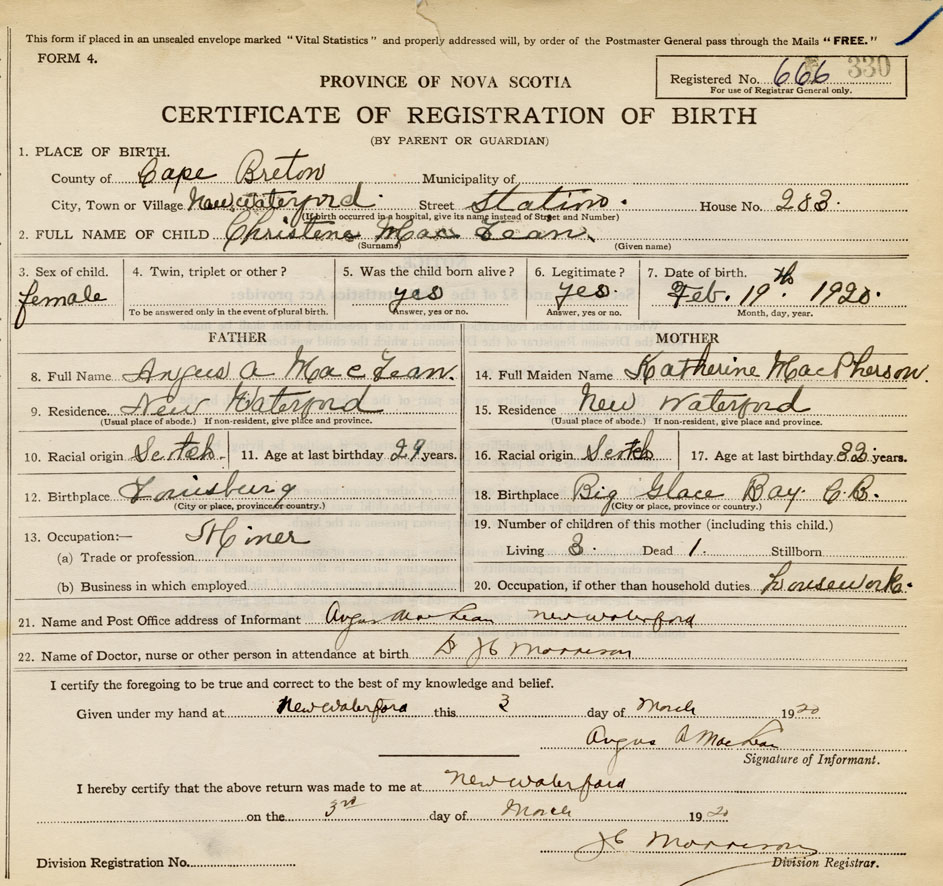 This form if placed in an unsealed envelope marked "Vital Statistics" and properly addressed will, by order of the Postmaster General pass through the Mails "FREE."
FORM 4.
Registered No. 666 330
For use of Registrar General only.
PROVINCE OF NOVA SCOTIA
CERTIFICATE OF REGISTRATION OF BIRTH
(BY PARENT OR GUARDIAN)
1. PLACE OF BIRTH.
County of Cape Breton Municipality of
City, Town or Village New Waterford Street Station. House No. 283.
(If birth occurred in a hospital, give its name instead of Street and Number)
2. FULL NAME OF CHILD Christena Mac Lean.
(Surname) (Given name)
3. Sex of child. 4. Twin, triplet or other? 5. Was the child born alive? 6. Legitimate? 7. Date of birth.
female yes yes. Feb. 19th. 1920.
To be answered only in the event of plural birth. Answer, yes or no. Answer, yes or no. Month, day, year.
FATHER MOTHER
8. Full Name Angus A Mac Lean. 14. Full Maiden Name Katherine MacPherson.
9. Residence. New Waterford 15. Residence New Waterford
(Usual place of abode.) If non-resident, give place and province. (Usual place of abode.) If non-resident, give place and province.
10. Racial origin Scotch. 11. Age at last birthday 29 years. 16. Racial origin Scotch 17. Age at last birthday 33 years.
12. Birthplace Louisburg 18. Birthplace Big Glace Bay. C.B.
(City or place, province or country.) (City or place, province or country.)
13. Occupation:— Miner 19. Number of children of this mother (including this child.)
(a) Trade or profession Living 3. Dead 1. Stillborn
(b) Business in which employed 20. Occupation, if other than household duties. housework.
21. Name and Post Office address of Informant Angus MacLean New Waterford
22. Name of Doctor, nurse or other person in attendance at birth Morrison
I certify the foregoing to be true and correct to the best of my knowledge and belief.
Given under my hand at New Waterford this 3 day of March 1920
Angus A MacLean
Signature of Informant.
I hereby certify that the above return was made to me at New Waterford
on the 3rd day of March 1920
Morrison
Division Registration No. Division Registrar.